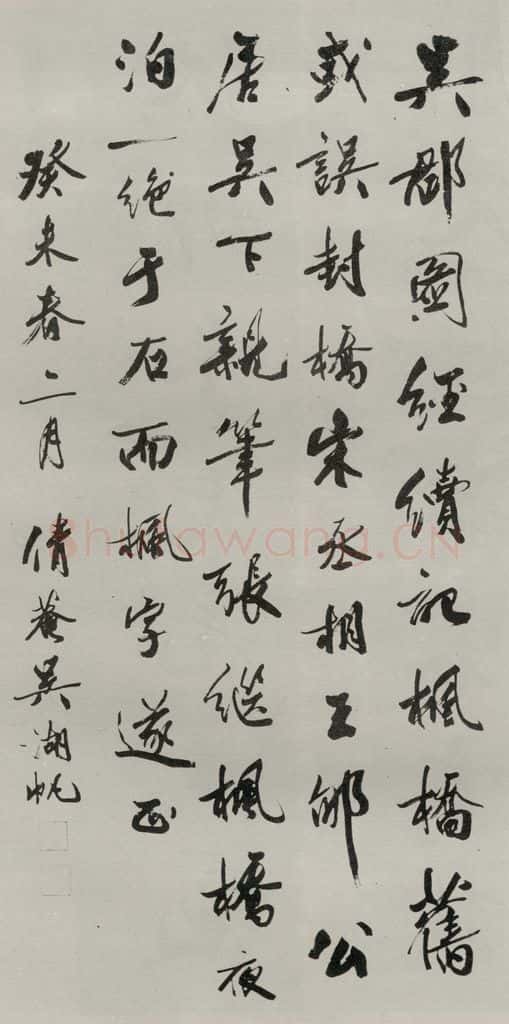 吳郡圖經續記楓橋舊
或誤封橋宋丞相王郇公
居吳下親筆張繼楓橋夜
泊一絕于石而楓字遂正
癸未春二月 倩菴吳湖帆
Shufawang.CN